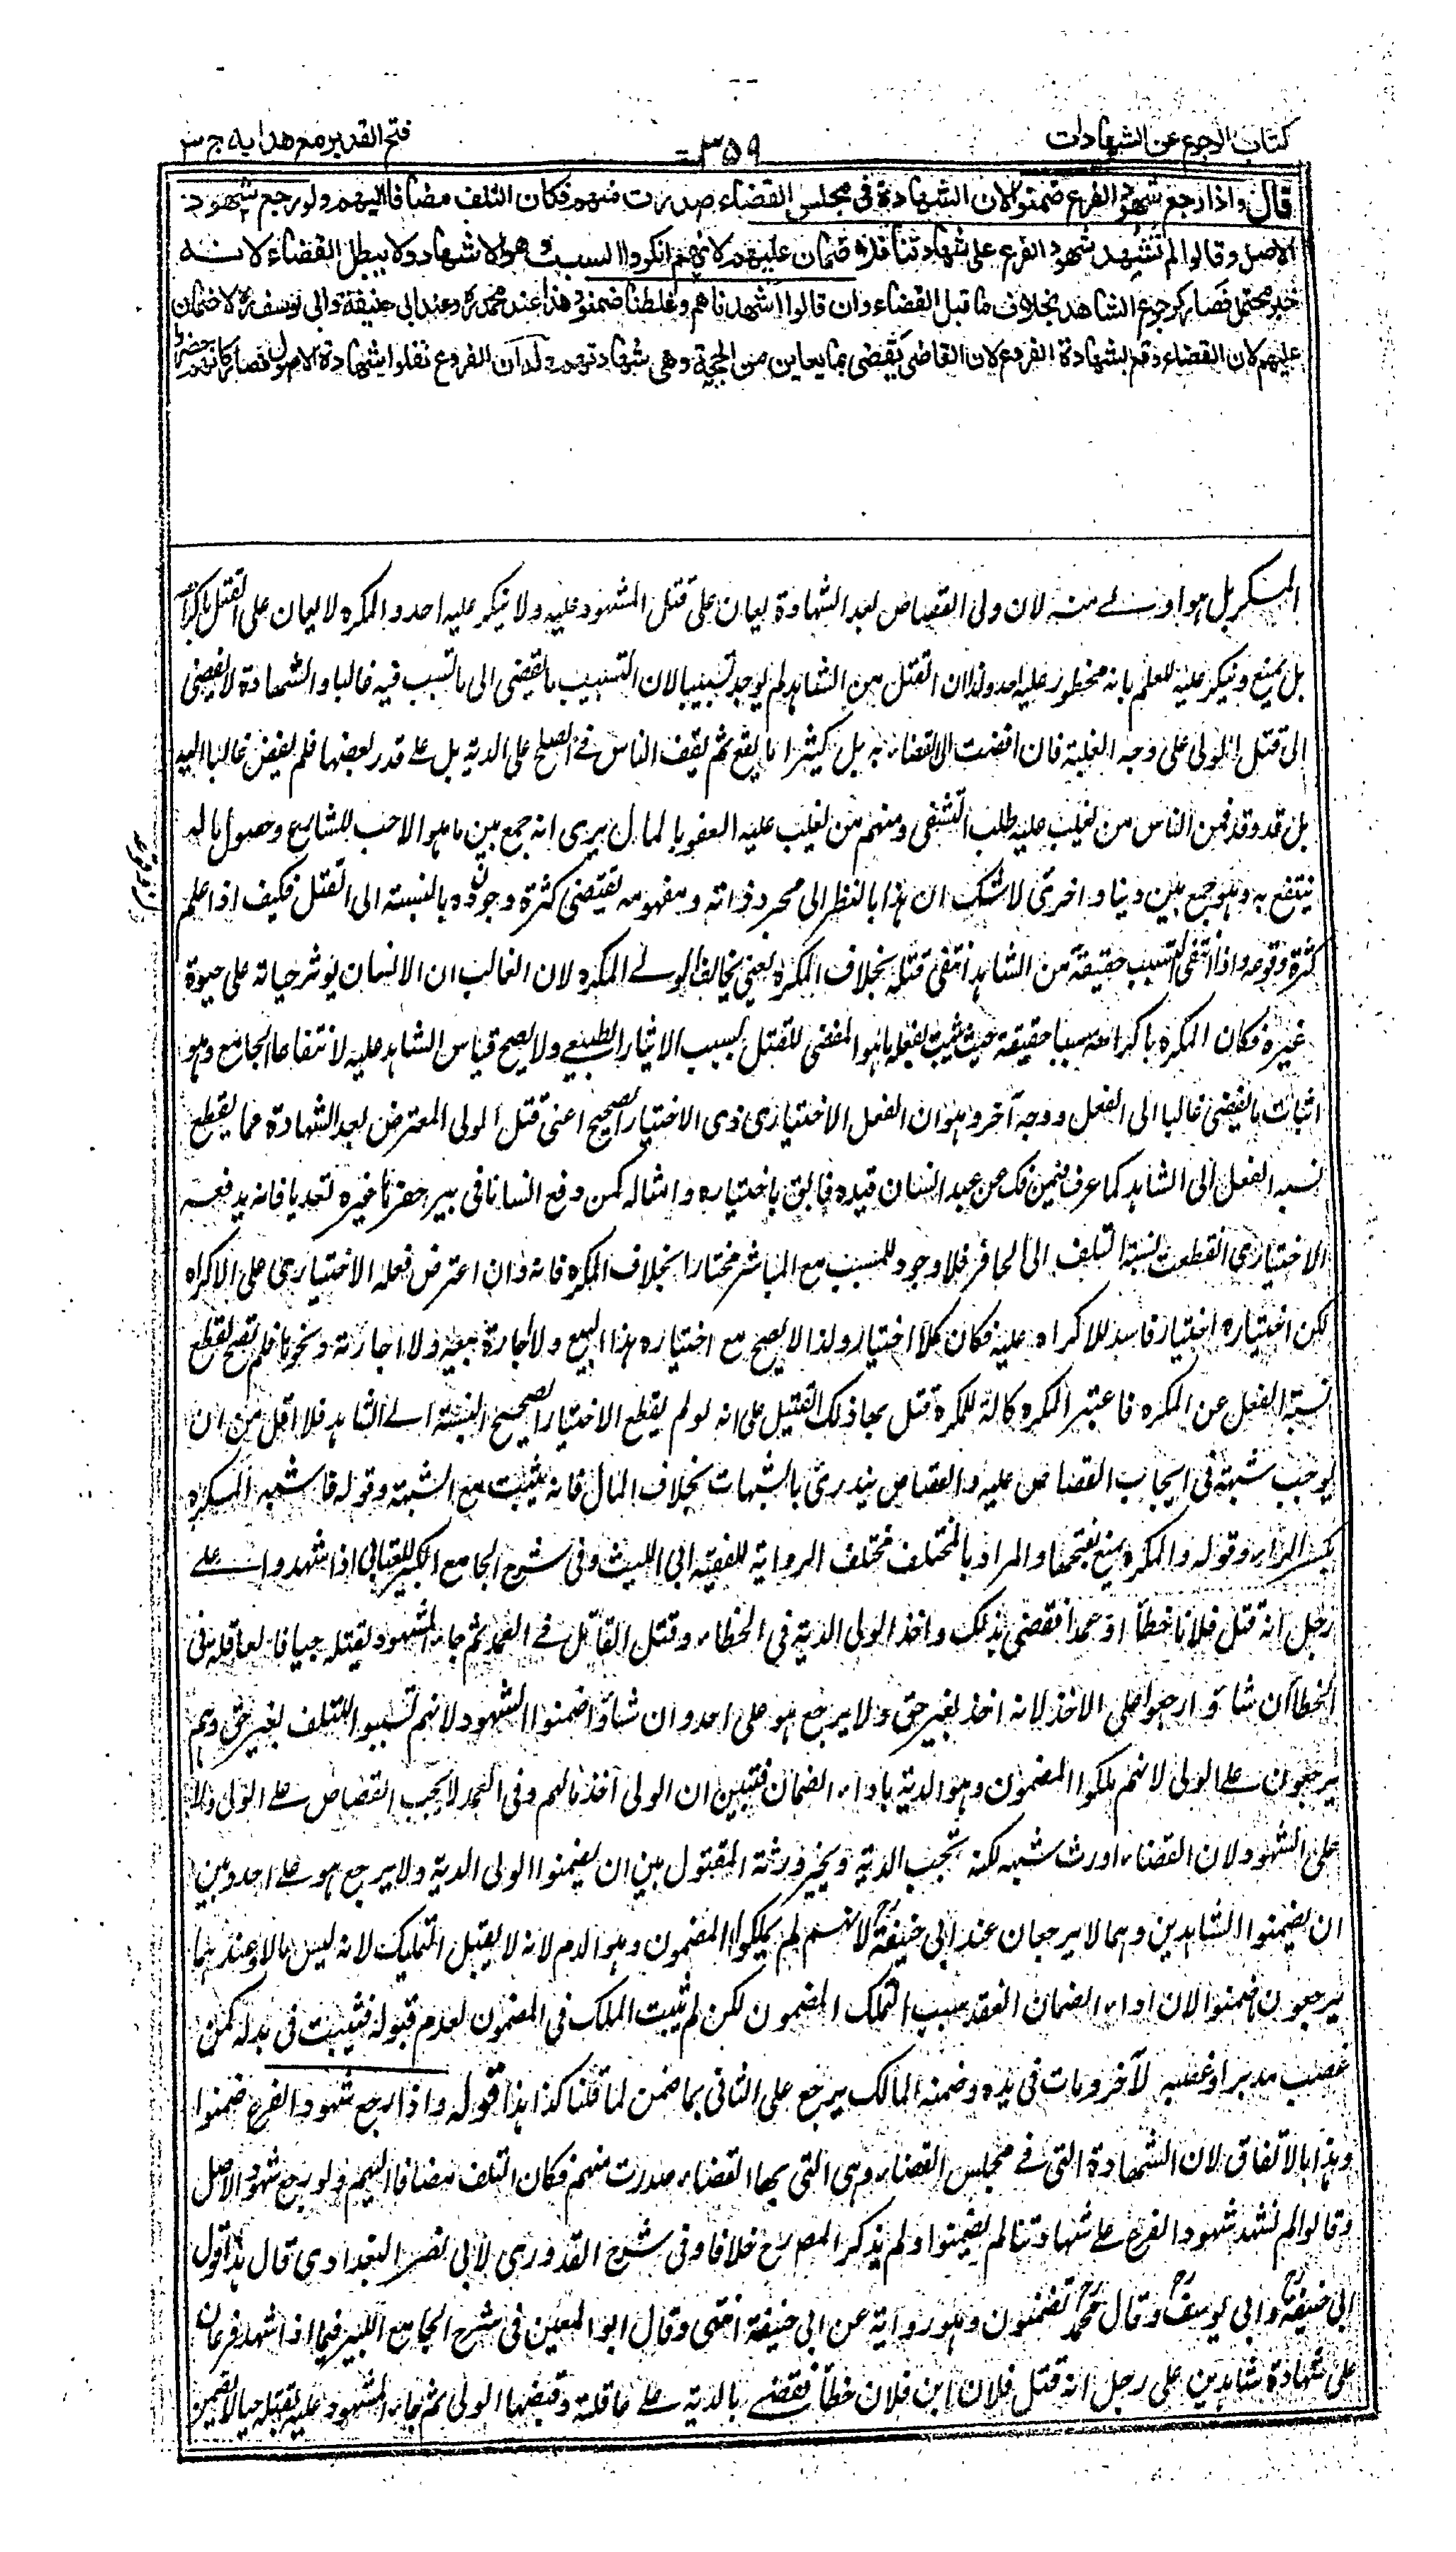 كتاب الرجوع عن الشهادات
۳۵۹
فتح القدير مع هدايه ج ۳
قال واذا رجع شهود الفرع ضمنوا لان الشهادة فى مجلس القضاء صدرت منهم فكان التلف مضافا اليهم ولو رجع شهود
الاصل وقالوا لم نشهد شهود الفرع على شهادتنا فلا ضمان عليهم لانهم انكروا السبب وهو الاشهاد ولا يبطل القضاء لانه
خبر محتمل فصار كرجوع الشاهد بخلاف ما قبل القضاء وان قالوا اشهدناهم وغلطنا ضمنوا وهذا عند محمدؒ وعند ابى حنيفةؒ وابى يوسفؒ لا ضمان
عليهم لان القضاء وقع بشهادة الفروع لان القاضى يقضى بما يعاين من الحجة وهى شهادتهم وله ان الفروع نقلوا شهادة الاصول فصار كانهم حضروا
المكره بل هو اولى منه لان ولى القصاص بعد الشهادة يعان على قتل المشهود عليه ولا ينكر عليه احد والمكره لا يعان على القتل باكراه
بل يمنع وينكر عليه للعلم بانه محظور عليه احد ولنا ان القتل من الشاهد لم يوجد تسبيبا لان التسبيب ما يفضى الى ما تسبب فيه غالبا والشهادة لا يفضى
الى قتل الولى على وجه الغلبة فان افضت الى القضاء به بل كثيرا ما يقع ثم يقف الناس فى الصلح على الدية بل على قدر بعضها فلم يفض غالبا اليه
بل قد وقد فمن الناس من يغلب عليه طلب التشفى ومنهم من يغلب عليه العفو بالمال يرى انه جمع بين ما هو الاحب للشارع وحصول ماله
ينتفع به وهو جمع بين دينا واخرى لا شك ان هذا بالنظر الى مجرد ذاته ومفهومه يقتضى كثرة وجوده بالنسبة الى القتل فكيف اذا علم
كثرة وقوعه واذا انتفى التسبب حقيقة من الشاهد انتفى قتله بخلاف المكره يعنى يخالف الولى المكره لان الغالب ان الانسان يوثر حياته على حيوة
غيره فكان المكره باكراهه سببا حقيقة حيث ثبت بفعله ما هو المفضى للقتل بسبب الايثار الطبيعى ولا يصح قياس الشاهد عليه لانتفاء الجامع وهو
اثبات ما يفضى غالبا الى الفعل ووجه آخر وهو ان الفعل الاختيارى ذى الاختيار الصحيح اعنى قتل الولى المعترض بعد الشهادة مما يقطع
نسبة الفعل الى الشاهد كما عرف فيمن فك عن عبد انسان قيده فابق باختياره وامثاله كمن دفع انسانا فى بير حفرها غيره تعديا فانه يدفعه
الاختيارى انقطعت نسبة التلف الى الحافر فلا وجود للمسبب مع المباشر مختارا بخلاف المكره فانه وان اعترض فعله الاختيارى على الاكراه
لكن اختياره اختيار فاسد للاكراه عليه فكان كلا اختيار ولذا لا يصح مع اختياره هذا البيع ولا اجارة بيعه ولا اجارته ونحوها فلم يصح لقطع
نسبة الفعل عن المكره فاعتبر المكره كالة للمكره قتل بها ذلك القتيل على انه لو لم يقطع الاختيار الصحيح النسبة الى الشاهد فلا اقل من ان
يوجب شبهة فى ايجاب القصاص عليه والقصاص يندرئ بالشبهات بخلاف المال فانه يثبت مع الشبهة وقوله فاشبه المكره
بكسر الراء وقوله والمكره يمنع بفتحها والمراد بالمختلف مختلف الرواية للفقيه ابى الليث وفى شرح الجامع الكبير للعتابى اذا شهدوا على
رجل انه قتل فلانا خطأ او عمدا فقضى بذلك واخذ الولى الدية فى الخطاء وقتل القاتل فى العمد ثم جاء المشهود بقتله حيا فالعاقلة فى
الخطأ ان شاؤا رجعوا على الاخذ لانه اخذ بغير حق ولا يرجع هو على احد وان شاؤا ضمنوا الشهود لانهم تسببوا للتلف بغير حق وهم
يرجعون على الولى لانهم ملكوا المضمون وهو الدية باداء الضمان فتبين ان الولى اخذ مالهم وفى العمد لا يجب القصاص على الولى ولا
على الشهود لان القضاء اورث شبهه لكنه تجب الدية ويخير ورثة المقتول بين ان يضمنوا الولى الدية ولا يرجع هو على احد وبين
ان يضمنوا الشاهدين وهما لا يرجعان عند ابى حنيفةؒ لانهم لم يملكوا المضمون وهو الدم لانه لا يقبل التمليك لانه ليس بمال وعندهما
يرجعون بما ضمنوا لان اداء الضمان انعقد سبب التملك المضمون لكن لم يثبت الملك فى المضمون لعدم قبوله فثبت فى بدله كمن
غصب مدبرا وغصبه لآخر ومات فى يده وضمنه المالك يرجع على الثانى بما ضمن لما قلنا كذا هذا قوله واذا رجع شهود الفرع ضمنوا
وهذا بالاتفاق لان الشهادة التى فى مجلس القضاء وهى التى بها القضاء صدرت منهم فكان التلف مضافا اليهم ولو رجع شهود الاصل
وقالوا لم نشهد شهود الفرع على شهادتنا لم يضمنوا ولم يذكر المصرح خلافا وفى شرح القدورى لابى نصر البغدادى قال هذا قول
ابى حنيفةؒ وابى يوسفؒ وقال محمدؒ تضمنون وهو رواية عن ابى حنيفة انتهى وقال ابو المعين فى شرح الجامع الكبير فيما اذا شهد فرعان
على شهادة شاهدين على رجل انه قتل فلان ابن فلان خطأ فقضى بالدية على عاقلة وقبضها الولى ثم جاء المشهود عليه بقتله حيا لا يضمن